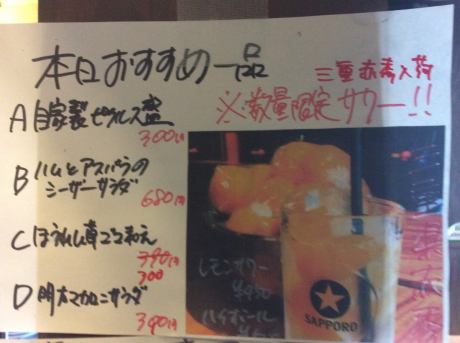 本日おすすめ一品
※数量限定サワー!!
A 自家製ピクルス盛
300円
B ハムとアスパラの
シーザーサラダ
680円
C ほうれん草ゴマ和え
390円
300
D 明太マカロニサラダ
390円
レモンサワー
ハイボール
SAPPORO